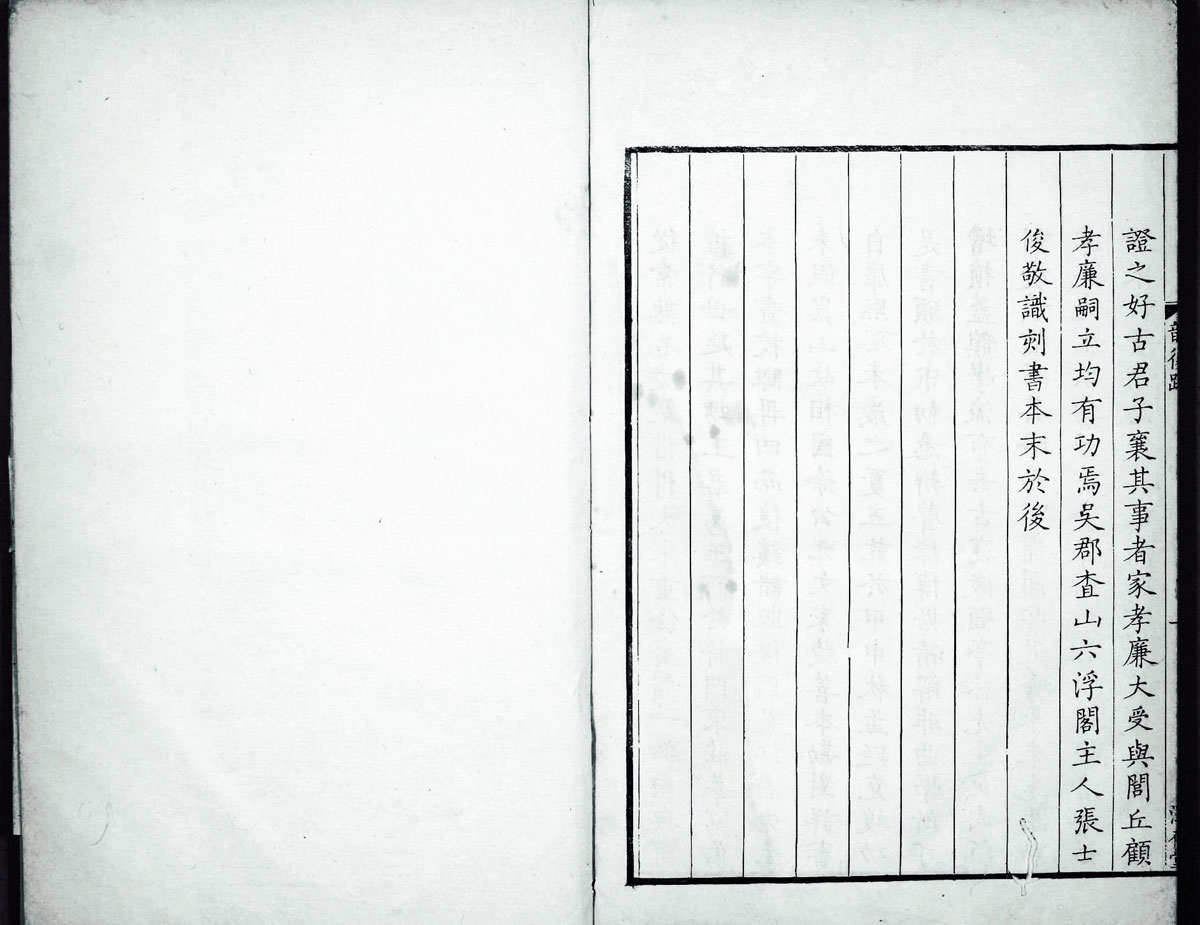 證之好古君子襄其事者家孝廉大受與閶丘顧
孝廉嗣立均有功焉吳郡査山六浮閣主人張士
俊敬識刻書本末於後